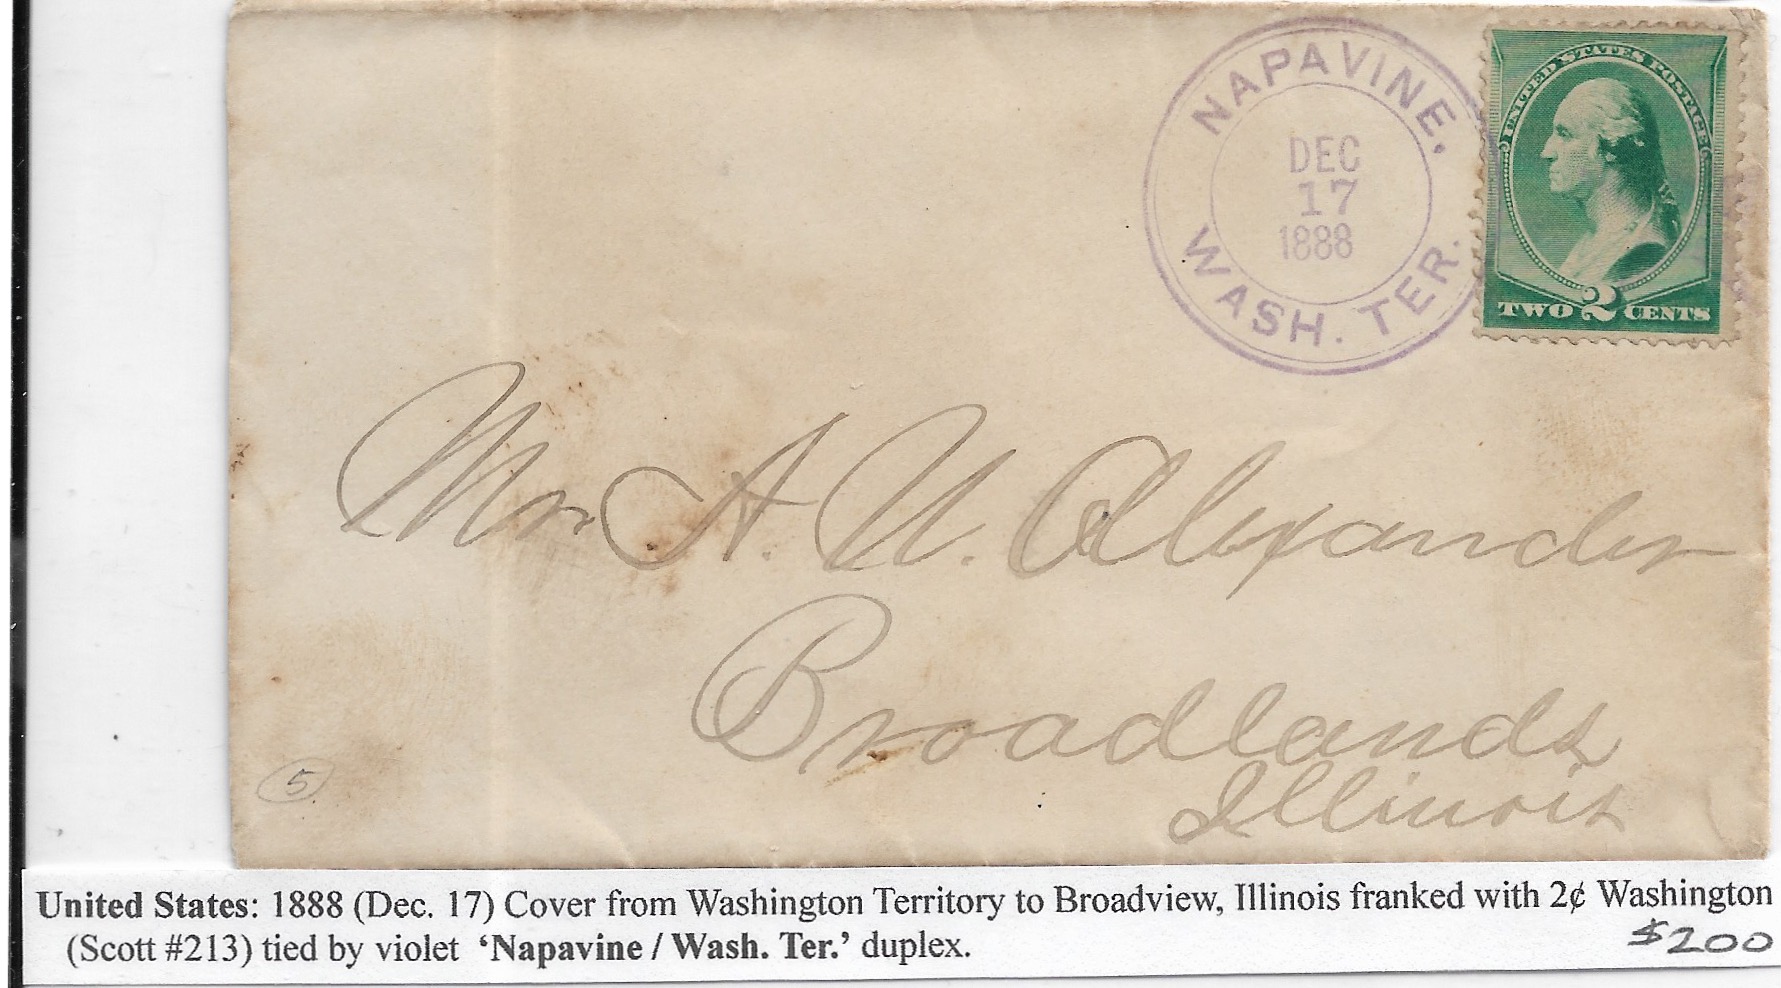 NAPAVINE,
DEC
17
1888
WASH. TER.
UNITED STATES POSTAGE
TWO 2 CENTS
Mr A. U. Alexander
Broadlands
Illinois
5
United States: 1888 (Dec. 17) Cover from Washington Territory to Broadview, Illinois franked with 2¢ Washington
(Scott #213) tied by violet ‘Napavine / Wash. Ter.’ duplex.
$200